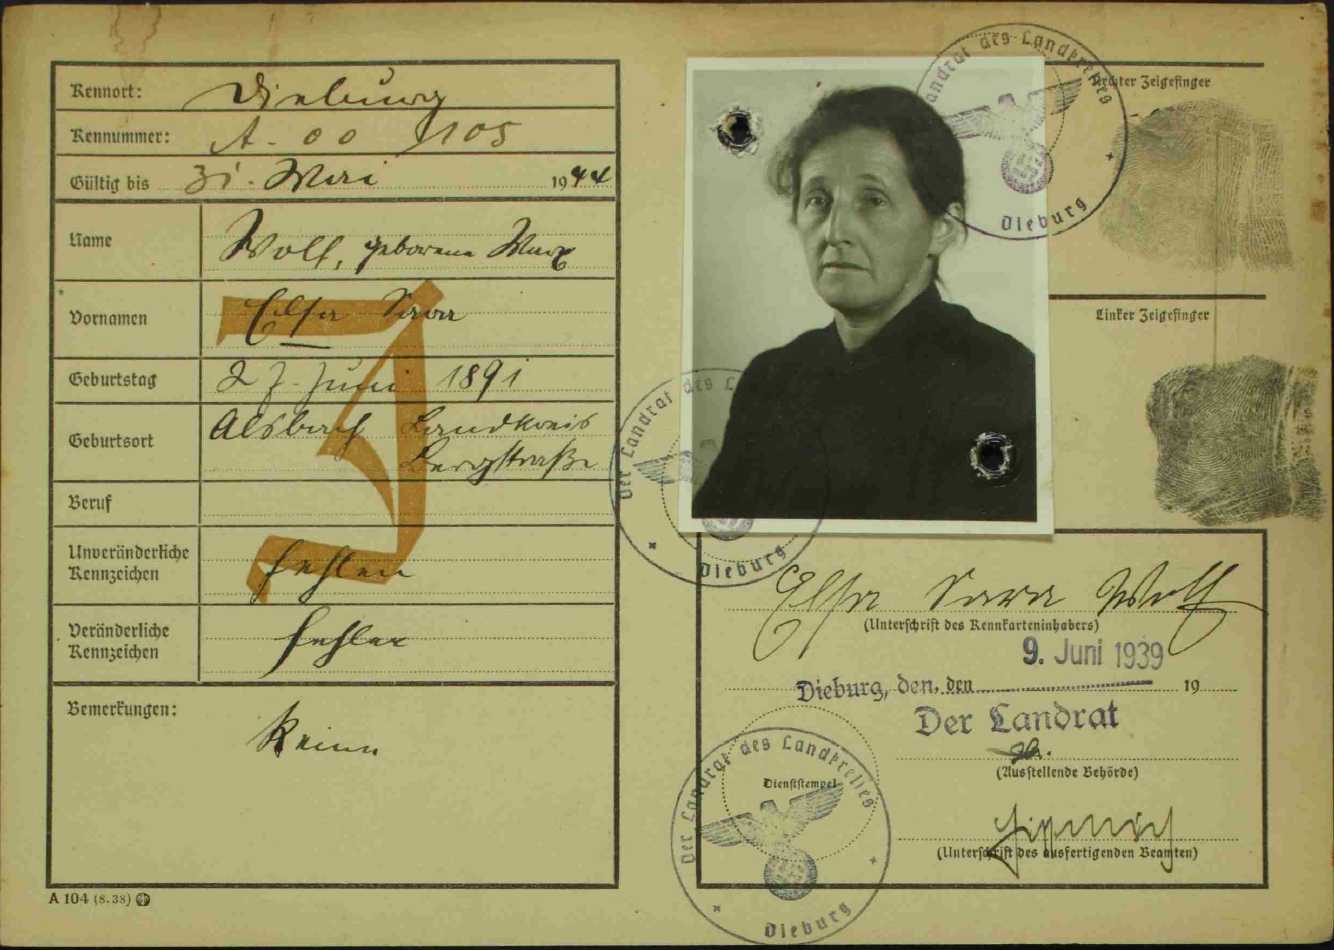 Kennort: Dieburg
Kennummer: A - 00 1105
Gültig bis 31. Mai 1944
Name Wolf, geborene Marx
Vornamen Elsa Sara
Geburtstag 27. Juni 1891
Geburtsort Alsbach Landkreis
Bergstraße
Beruf
Unveränderliche
Kennzeichen fehlen
Veränderliche
Kennzeichen fehlen
Bemerkungen: Keine
A 104 (8. 38)
J
Der Landrat des Landkreises
Dieburg
Rechter Zeigefinger
Linker Zeigefinger
Der Landrat des L
Dieburg
Elsa Sara Wolf
(Unterschrift des Kennkarteninhabers)
9. Juni 1939
Dieburg, den, den 19
Der Landrat
(Ausstellende Behörde)
Dienststempel
Der Landrat des Landkreises
Dieburg
(Unterschrift des ausfertigenden Beamten)